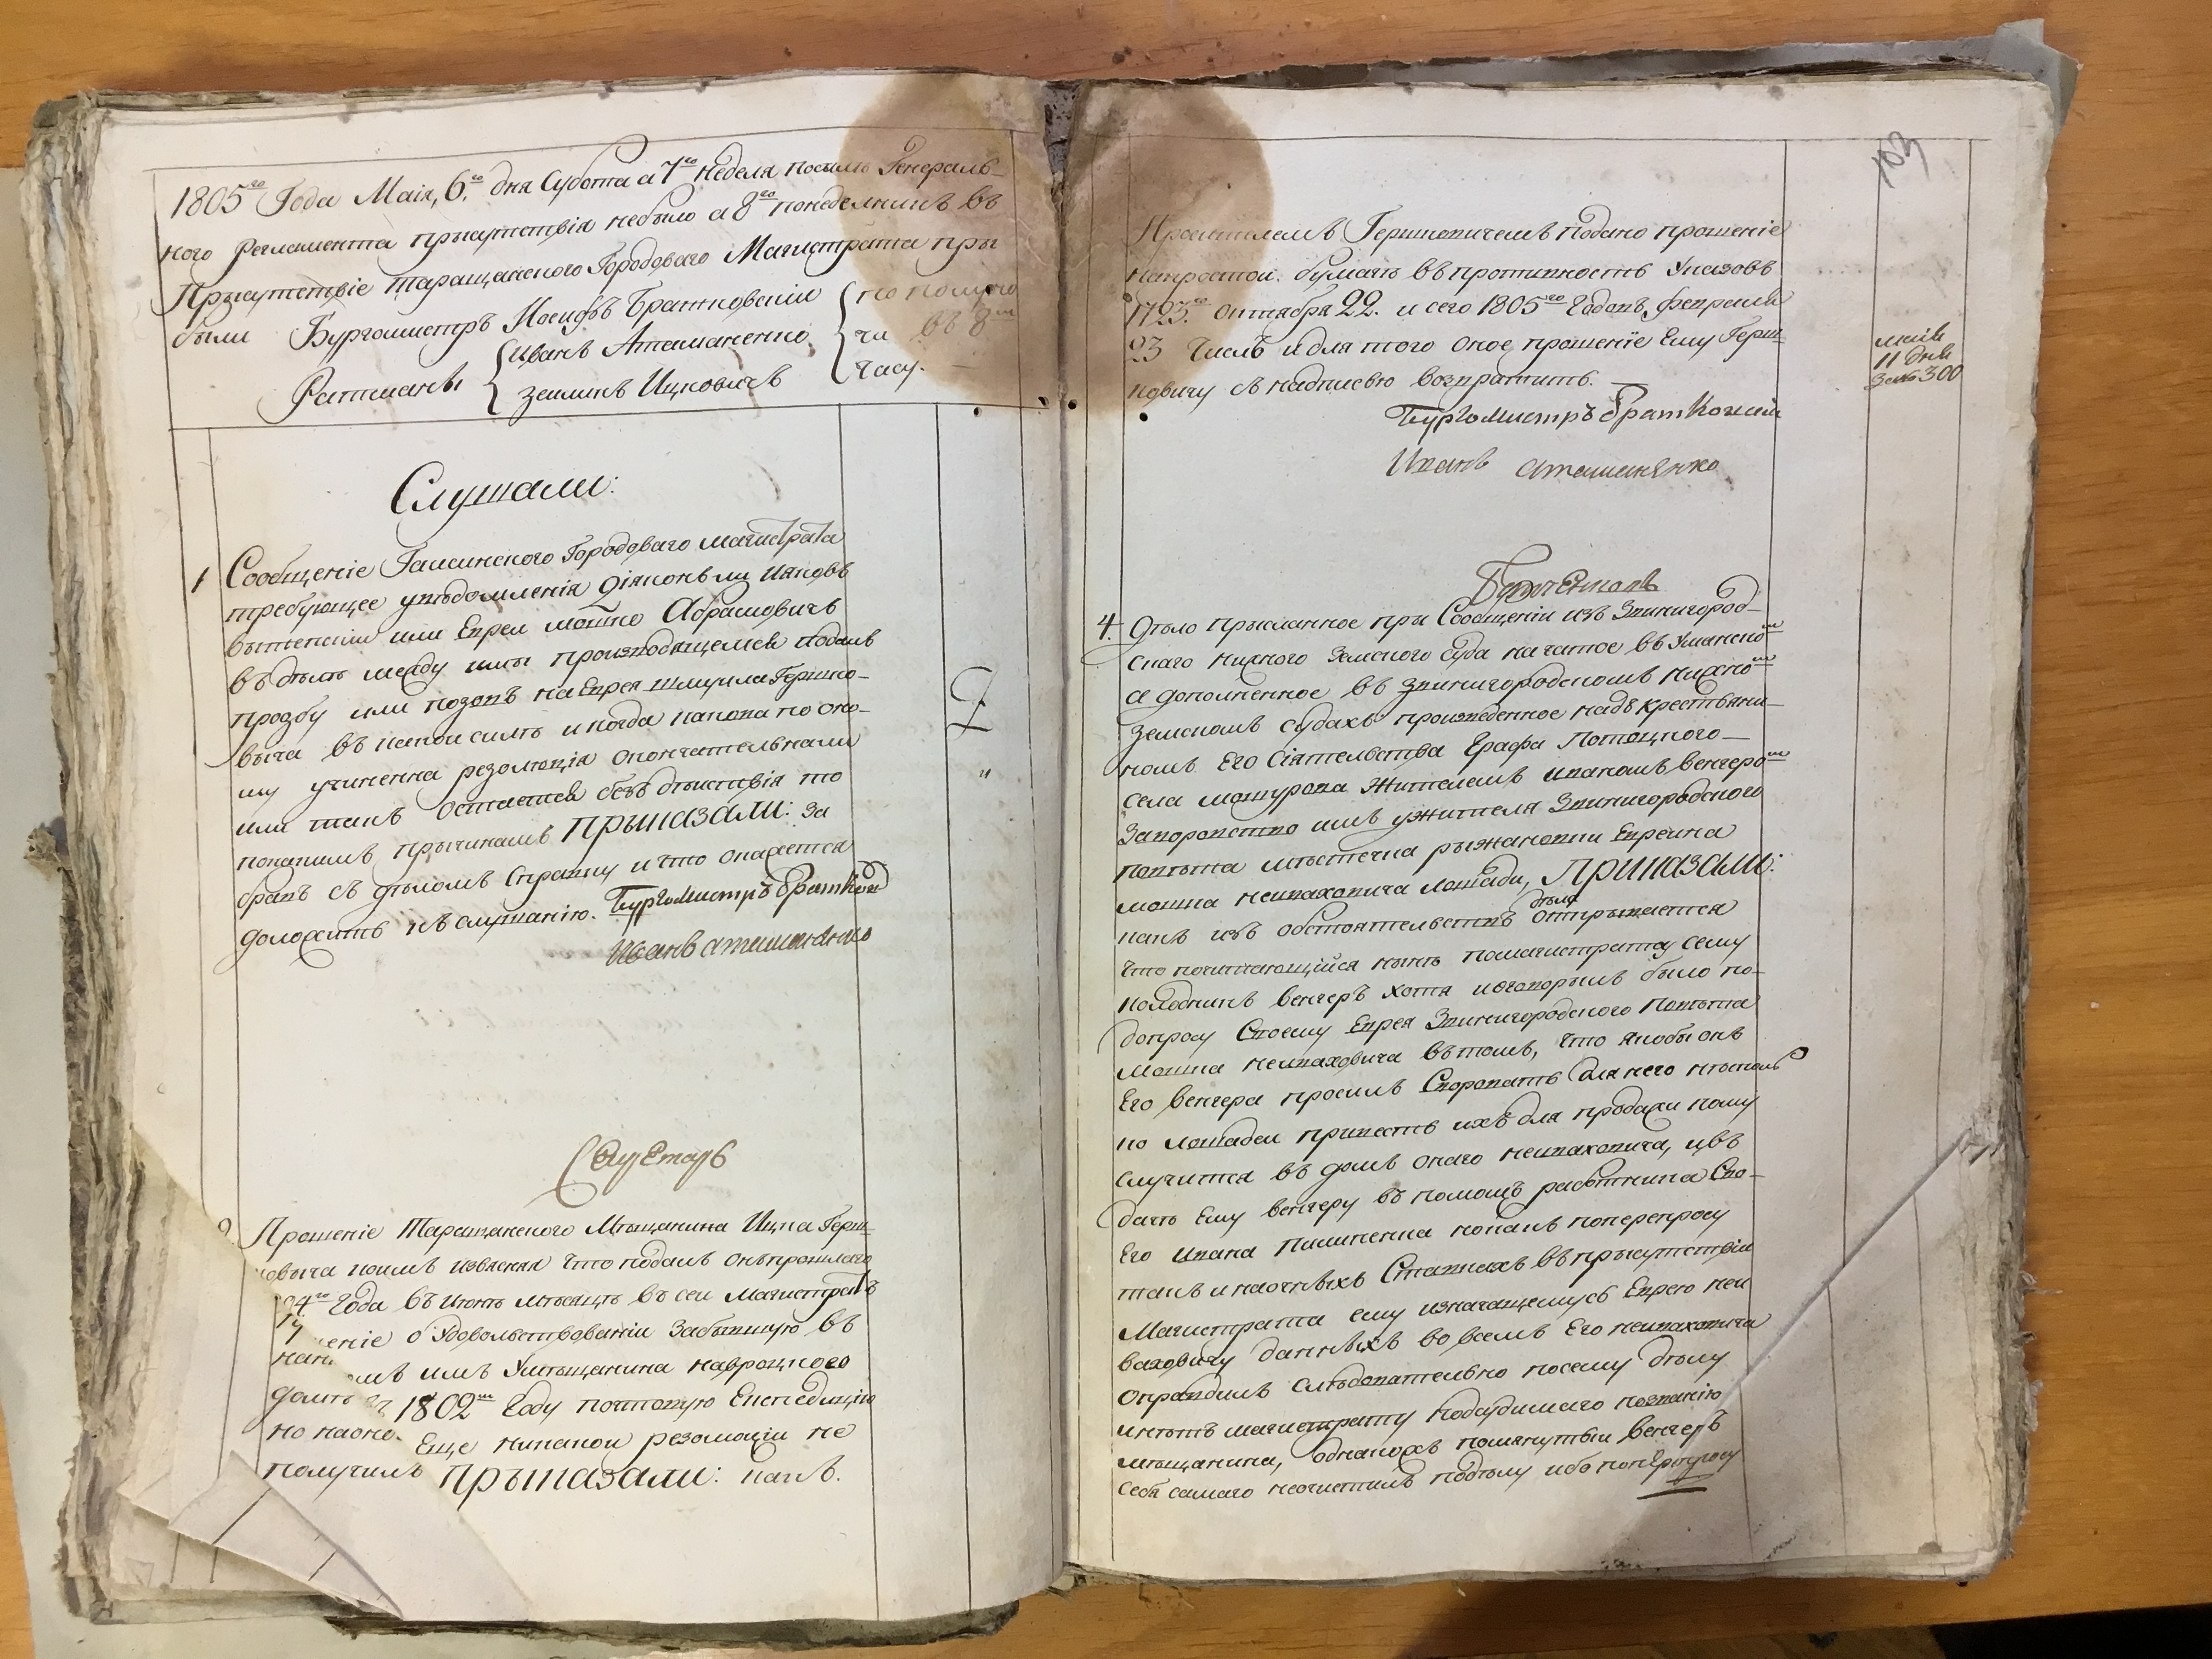 1805го Года Маія, 6.го дня Субота а 7го неделя посылѣ Генераль-
ного Регламента прысутствія небыло а 8го понеделникъ въ
Прысутствіе таращанского Городоваго Магистрата пры
были Бургомистръ Иосифъ Братковскій по полу
Ратманы Иванъ Атаманенко ча въ 8м
Зеликъ Ицковичъ часу.
Слушали:
1 Сообщеніе Гайсинского Городоваго магистрата
требующее увѣдомленія діяконъ ли Яковъ
вытвскій или Еврей мошко Абрамовичъ
въ дѣлѣ между имы производящемся подалъ
прозбу или позовъ на Еврея шмуила Гершко-
выча въ какой силѣ и когда какова по оно-
му учиненна резолюція окончателнали
или такъ остается безъ дѣйствія по
каковымъ прычинамъ Прыказали: За
бравъ съ дѣломъ справку и что окажется
доложить къ слушанію. Бургомистръ Братков
Иванъ атаманенко
Прошеніе Таращанского Мѣщанина Ицка Герш-
ковыча коимъ изясняя что подалъ онъ прошлаго
04го Года въ Июнѣ мѣсяцѣ въ сей Магистратъ
шеніе о удовольствованіи забытную въ
имъ Умѣщанина навроцкого
домѣ 1802м Году почтовую Експедицію
но наоно Еще никакой резолюціи не
получилъ Прыказали: какъ.
103
Просителемъ Гершковичемъ подано прошеніе
напростой бумагѣ въ противность Указовъ
1723го октября 22. и сего 1805го Годовъ, февраля
23 Числъ и для того оное прошеніе Ему Герш-
ковичу съ надписью возвратить.
маія
11 дня
за № 300
Бургомистръ Братковскій
Иванъ атаманенко
4. Дѣло прысланное пры Сообщеніи изъ Звинигород-
скаго нижного Земского Суда начатое въ Уманско
а дополненное въ Звинигородскомъ нижно
земскомъ судахъ произведенное надъ крестьяни-
номъ Его Сіятельства Графа Потоцкого
села мокурова Жителемъ иваномъ венгеро
Заворовство имъ ужителя Звинигородского
повѣта мѣстечка рыжановки Евреина
мошка неиваховича лошади, Приказали:
какъ изъ обстоятельствъ дѣла открывается
что почитающійся нынѣ помагистрату сему
колодникъ венгеръ хотя иоговорылъ было по
допросу Своему Еврея Звинигородского повѣта
мошка неиваховича вътомъ, что якобы онъ
Его венгера просилъ Своровать для него нѣсколь
ко лошадей привесть ихъ для продажи кому
случится въ домъ онаго неиваховича, и въ
дачъ Ему венгеру въ помощъ работника Сво-
Его ивана пилипенка но какъ поперепросу
такъ и наочныхъ Ставкахъ въ прысутствіи
Магистрата ему изначащемусь Еврею неи
ваховичу данныхъ во всемъ Его неиваховича
оправдилъ слѣдовательно посему дѣлу
инѣтъ магистрату подсудимаго познанію
мѣщанина, однакожъ помянутый венгеръ
себя самаго неочистилъ подѣлу ибо поперепросу